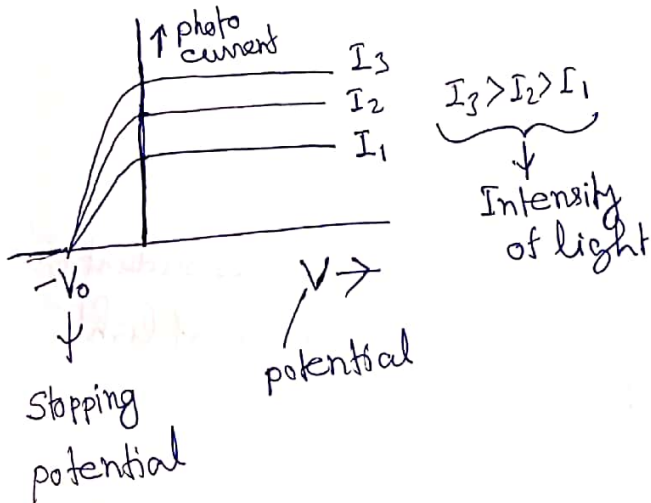 ↑ photo
current
I3
I2
I1
I3 > I2 > I1
↓
Intensity
of light
-V0
↓
Stopping
potential
V →
potential